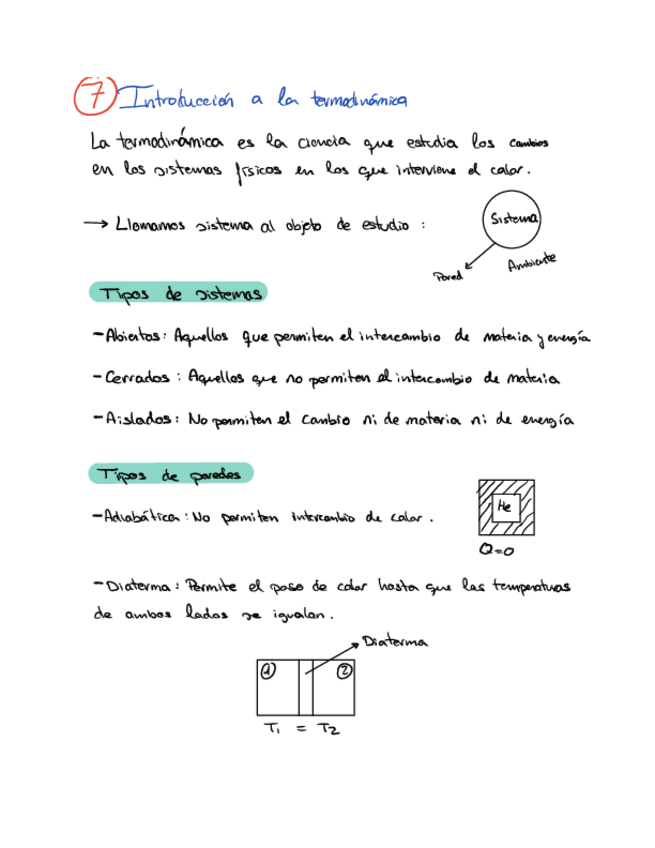 7 Introducción a la termodinámica
La termodinámica es la ciencia que estudia los cambios
en los sistemas físicos en los que interviene el calor.
→ Llamamos sistema al objeto de estudio :
Sistema
Pared
Ambiente
Tipos de sistemas
- Abiertos: Aquellos que permiten el intercambio de materia y energía
- Cerrados : Aquellos que no permiten el intercambio de materia
- Aislados: No permiten el cambio ni de materia ni de energía
Tipos de paredes
- Adiabática: No permiten intercambio de calor.
He
Q=0
- Diaterma: Permite el paso de calor hasta que las temperaturas
de ambos lados se igualan.
Diaterma
1 2
T₁ = T₂